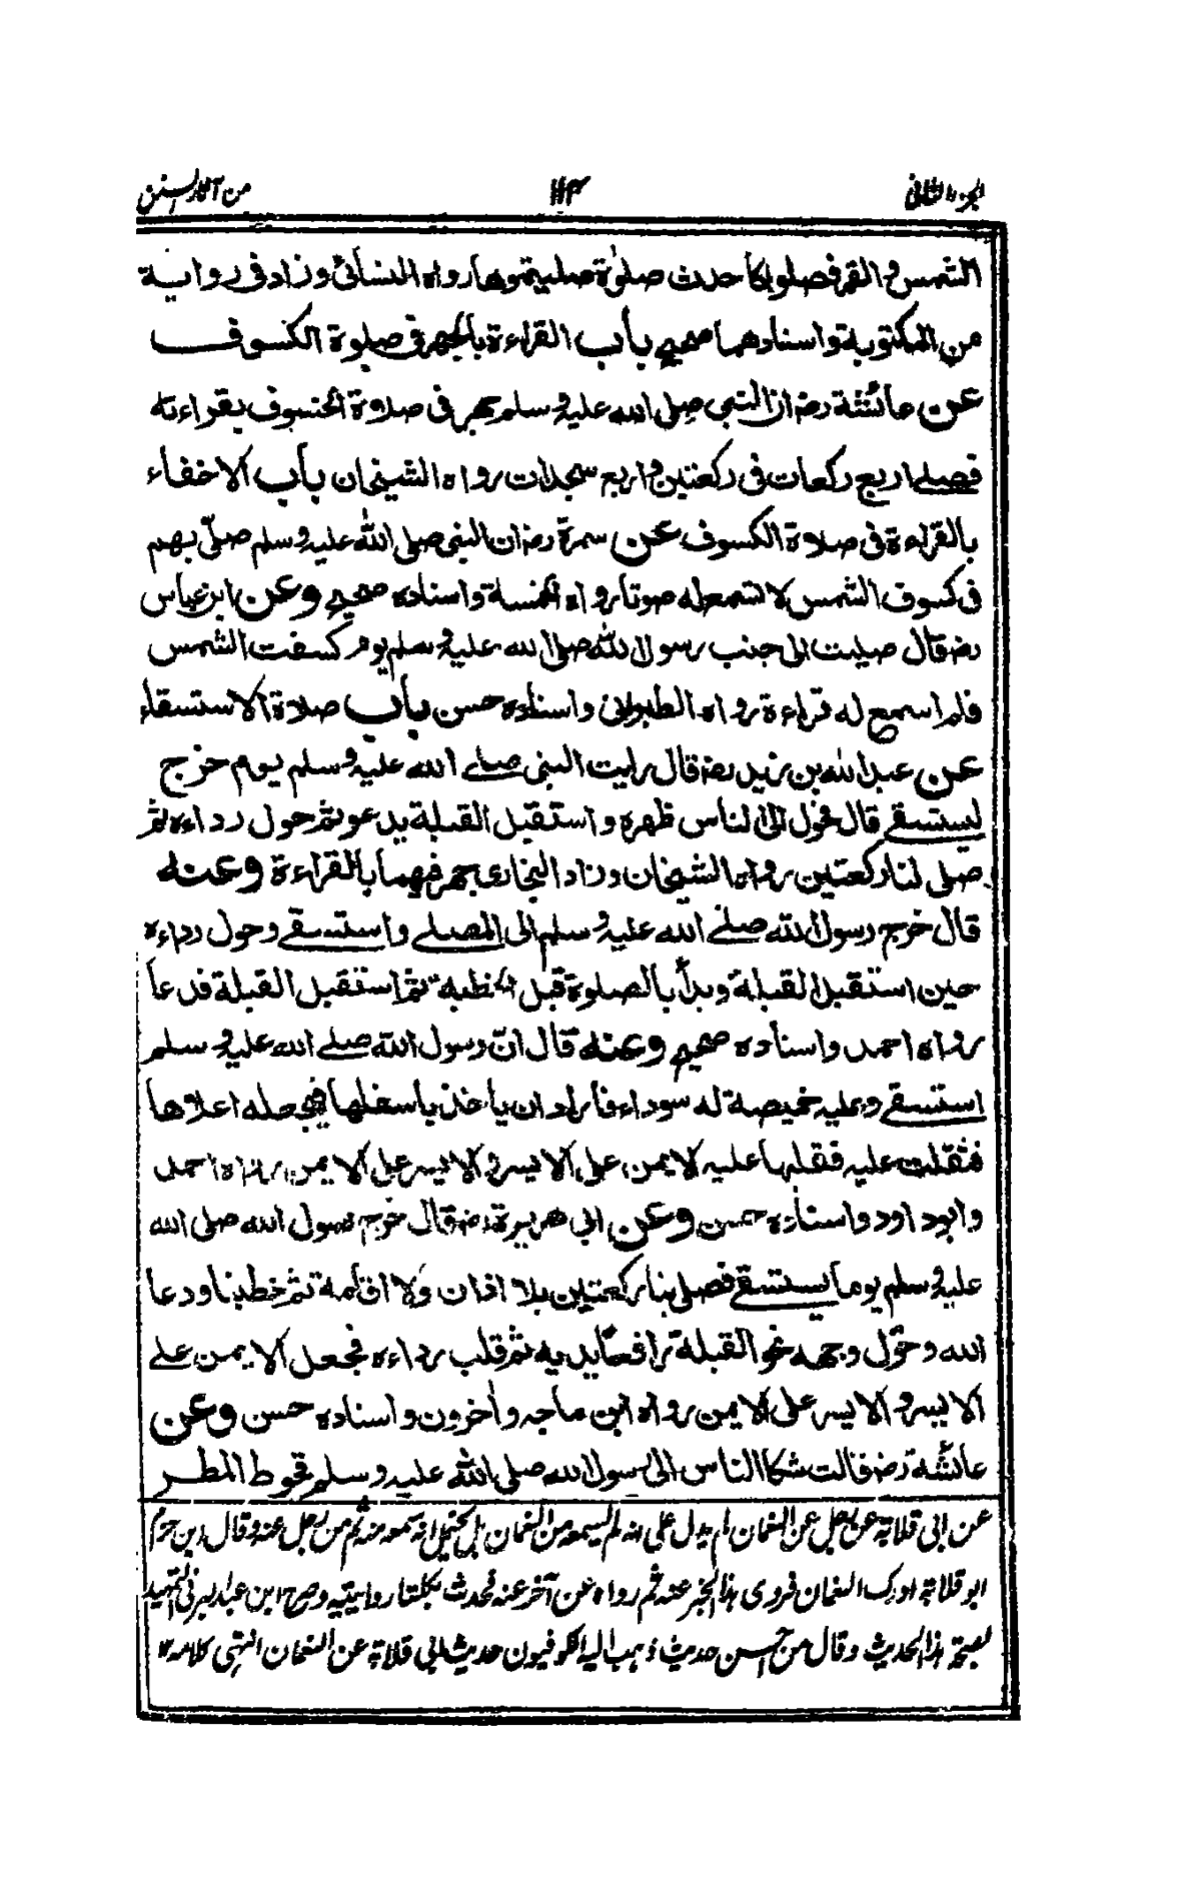 الجزء الثاني ١١٣ من آثار السنن
الشمس والقمر فصلوا كاحدث صلوٰة صليتموها رواه النسائی وزاد فی رواية
من المكتوبة واسنادهما صحيح باب القراءة بالجهر فی صلوة الكسوف
عن عائشة رضـ ان النبی صلی الله عليه وسلم جهر فی صلاة الخسوف بقراءته
فصلے اربع ركعات فی ركعتين واربع سجدات رواه الشيخان باب الاخفاء
بالقراءة فی صلاة الكسوف عن سمرة رضـ ان النبی صلی الله عليه وسلم صلّی بهم
فی كسوف الشمس لا نسمع له صوتا رواه الخمسة واسناده صحيح وعن ابن عباس
رضـ قال صليت الی جنب رسول الله صلی الله عليه وسلم يوم كسفت الشمس
فلم اسمع له قراءة رواه الطبرانی واسناده حسن باب صلاة الاستسقاء
عن عبد الله بن زيد رضـ قال رايت النبی صلے الله عليه وسلم يوم خرج
ليستسقے قال فحول الی الناس ظهره واستقبل القبلة يدعو ثم حول رداءه ثم
صلی لنا ركعتين رواه الشيخان وزاد البخاری جهر فيهما بالقراءة وعنه
قال خرج رسول الله صلے الله عليه وسلم الی المصلے واستسقے وحول رداءه
حين استقبل القبلة وبدأ بالصلوة قبل الخطبة ثم استقبل القبلة فدعا
رواه احمد واسناده صحيح وعنه قال انّ رسول الله صلے الله عليه وسلم
استسقے وعليه خميصة له سوداء فأراد ان ياخذ باسفلها فيجعله اعلاها
فثقلت عليه فقلبها عليه الايمن علی الايسر والايسر علی الايمن رواه احمد
وابو داود واسناده حسن وعن ابی هريرة رضـ قال خرج رسول الله صلی الله
عليه وسلم يوما يستسقے فصلی بنا ركعتين بلا اذان ولا اقامة ثم خطبنا ودعا
الله وحوّل وجهه نحو القبلة رافعا يديه ثم قلب رداءه فجعل الايمن علے
الايسر والايسر علی الايمن رواه ابن ماجه وأخرون واسناده حسن وعن
عائشة رضـ قالت شكا الناس الی رسول الله صلی الله عليه وسلم قحوط المطر
عن ابی قلابة عن رجل عن النعمان لم يدل علی انه لم يسمعه من النعمان بل يحتمل انه سمعه منه ثم من رجل عنه وقال ابن حزم
ابو قلابة ادرك النعمان فروی هذا الخبر عنه ثم رواه عن آخر عنه فحدث بكلتا روايتيه وصرح ابن عبد البر فی التمهيد
بصحة هذا الحديث وقال من احسن حديث ذهب اليه الكوفيون حديث ابی قلابة عن النعمان انتهی كلامه ١٢